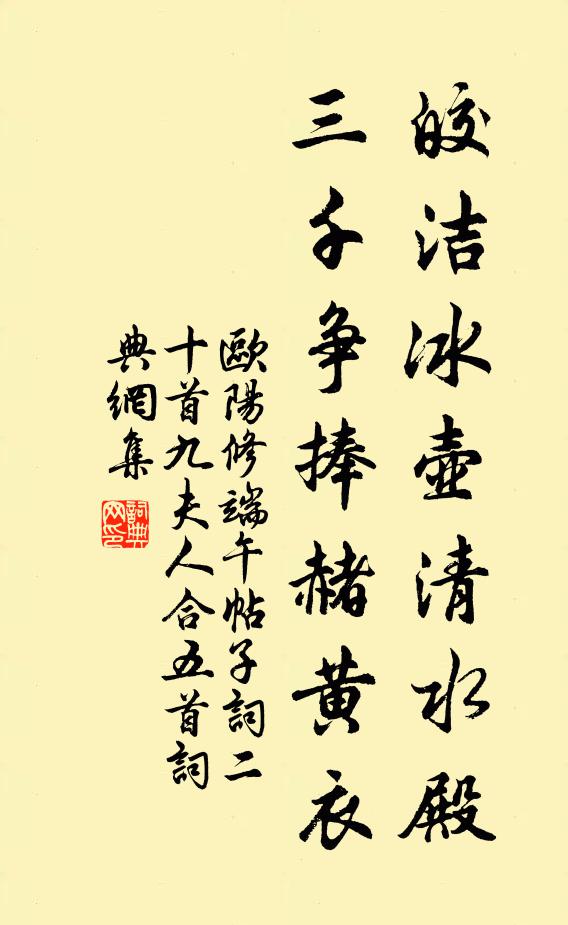 皎洁冰壺清水殿
三千争捧赭黄衣
歐陽修端午帖子詞二
十首九夫人合五首詞
典網集
詞典
网印